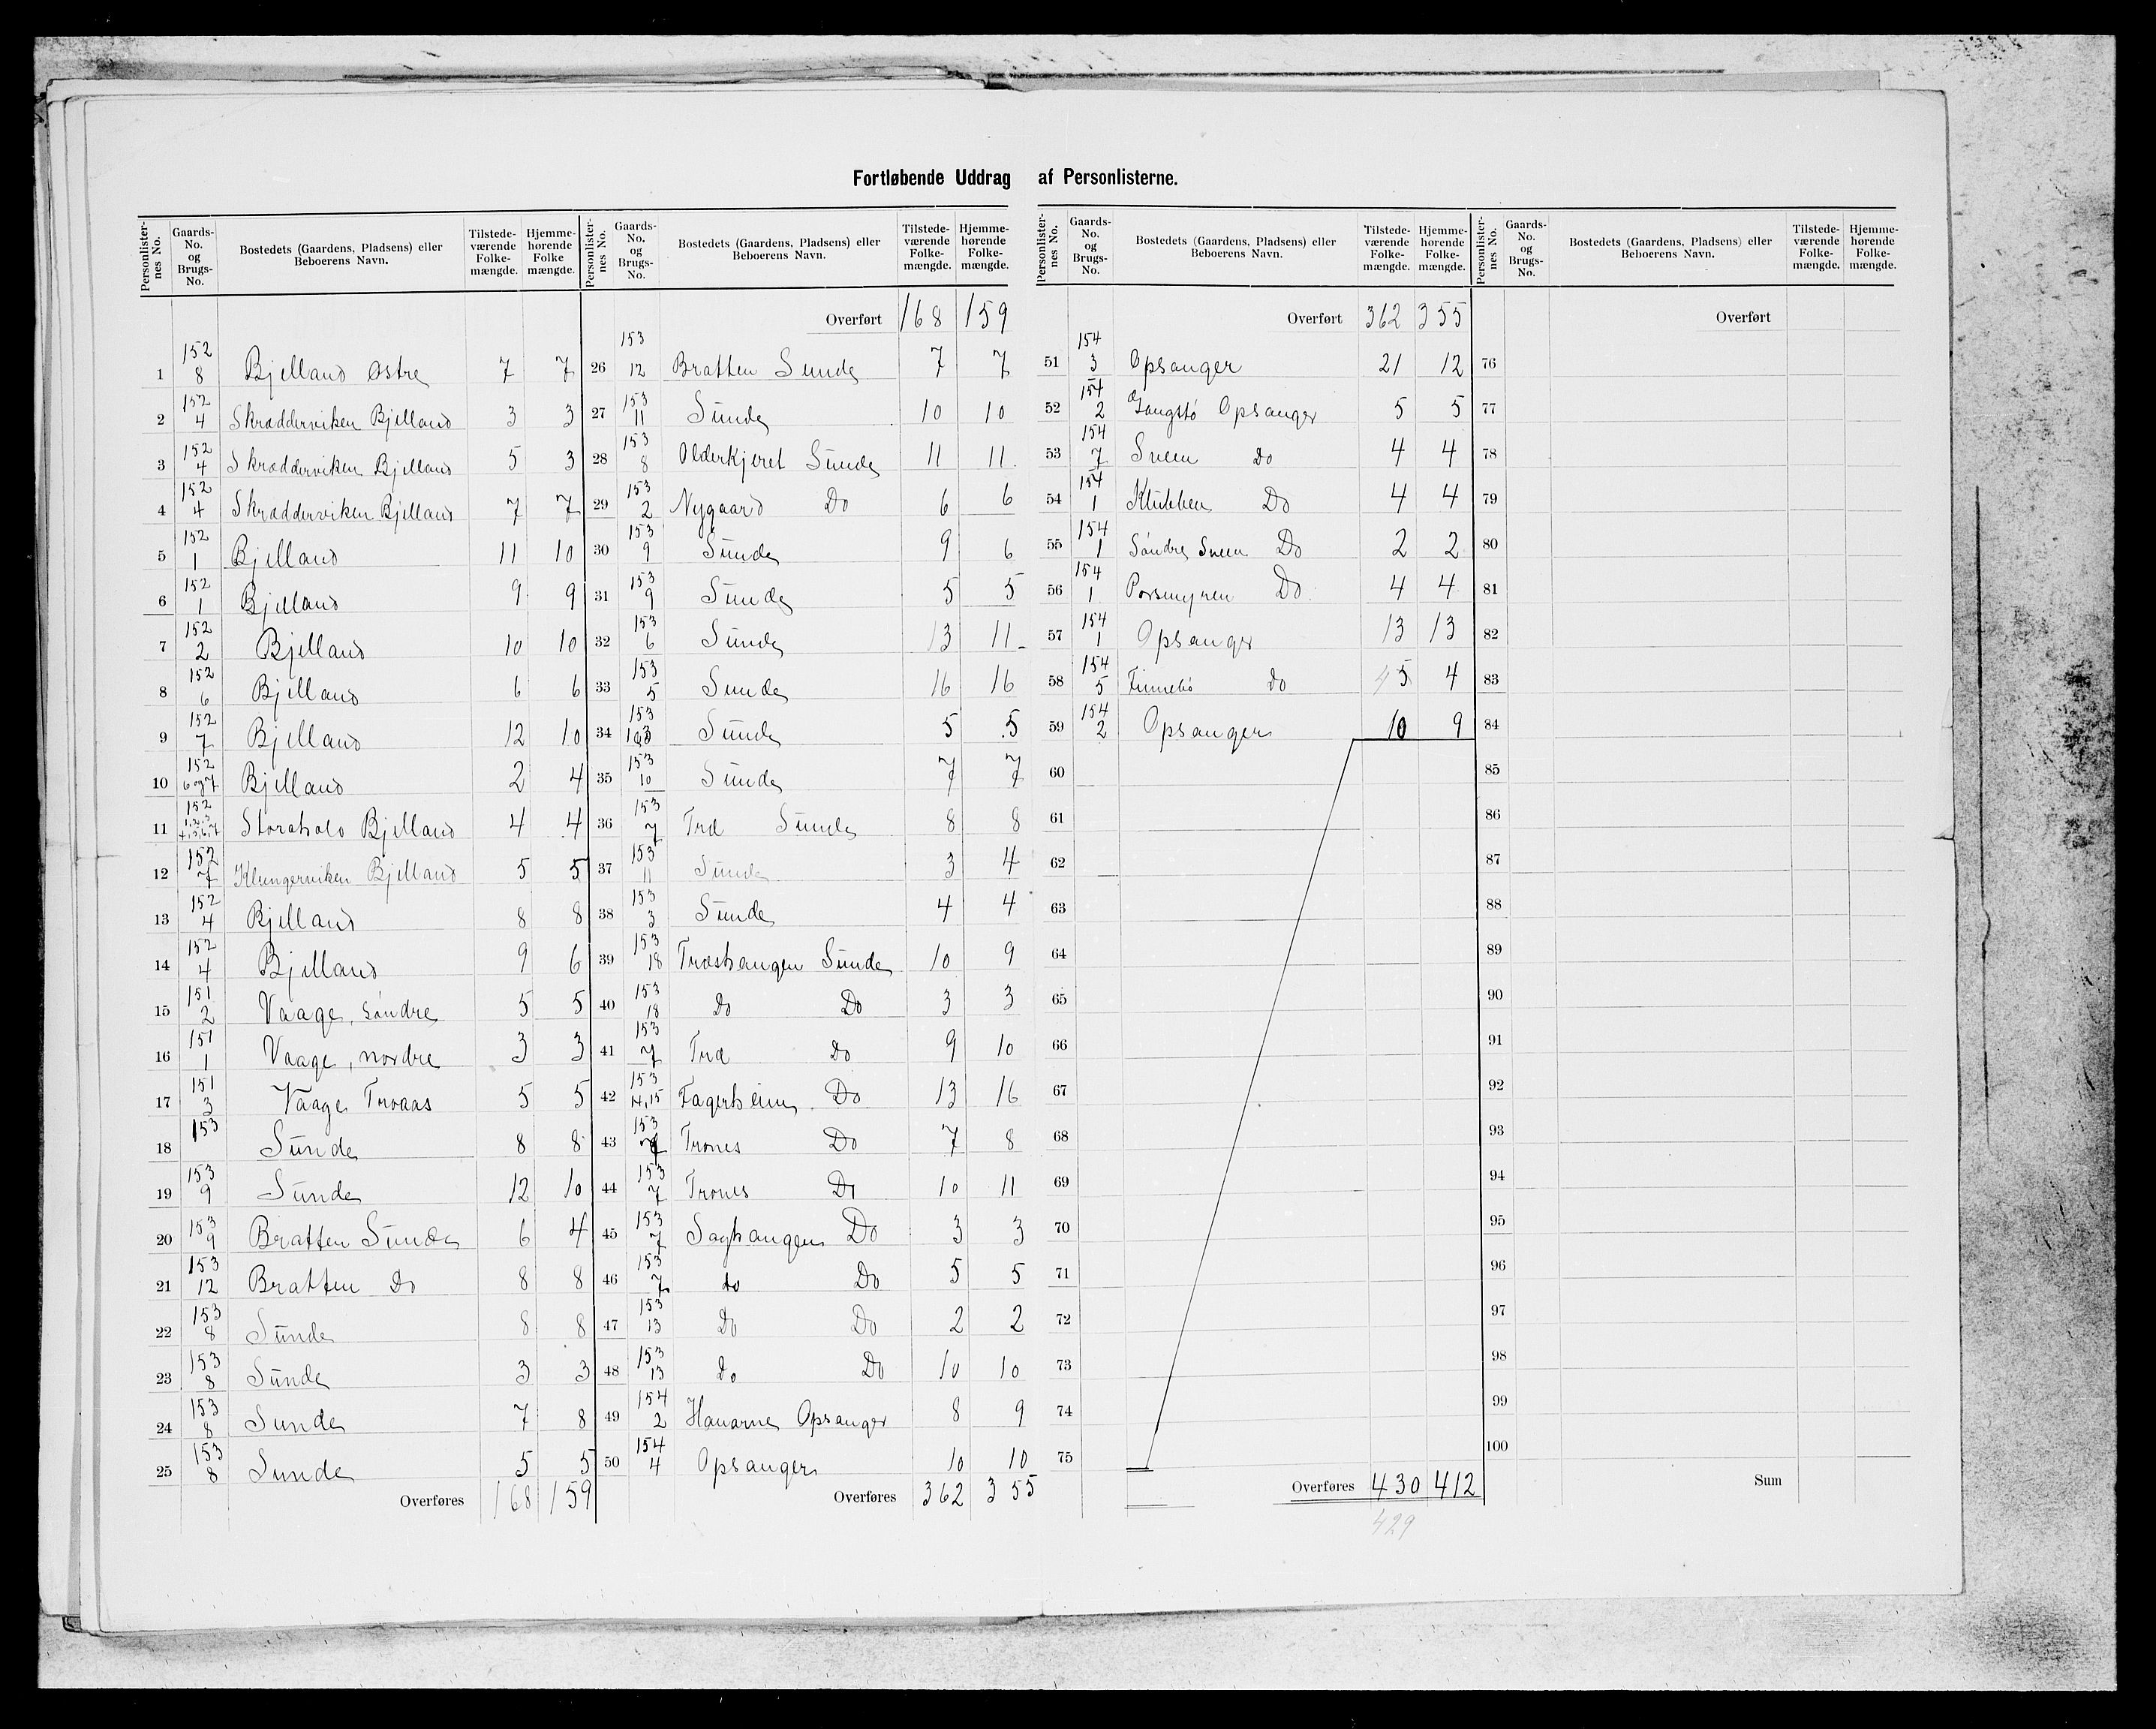 Fortløbende Uddrag af Personlisterne.
Personlisternes No. Gaards-No. og Brugs-No. Bostedets (Gaardens, Pladsens) eller Beboerens Navn. Tilstedeværende Folkemængde. Hjemmehørende Folkemængde.
1 152 8 Bjelland østre 7 7
2 152 4 Skrædderviken Bjelland 3 3
3 152 4 Skrædderviken Bjelland 5 3
4 152 4 Skrædderviken Bjelland 7 7
5 152 1 Bjelland 11 10
6 152 1 Bjelland 9 9
7 152 2 Bjelland 10 10
8 152 6 Bjelland 6 6
9 152 7 Bjelland 12 10
10 152 6 og 7 Bjelland 2 4
11 152 Bjelland 4 4
12 152 7 Klungerviken Bjelland 5 5
13 152 4 Bjelland 8 8
14 152 4 Bjelland 9 6
15 151 2 Vaage, søndre 5 5
16 151 1 Vaage, nordre 3 3
17 151 3 Vaage Traaas 5 5
18 153 Sunde 8 8
19 153 9 Sunde 12 10
20 153 9 Bratten Sunde 6 4
21 153 12 Bratten Do 8 8
22 153 8 Sunde 8 8
23 153 8 Sunde 3 3
24 153 8 Sunde 7 8
25 153 8 Sunde 5 5
Overføres 168 159
Personlisternes No. Gaards-No. og Brugs-No. Bostedets (Gaardens, Pladsens) eller Beboerens Navn. Tilstedeværende Folkemængde. Hjemmehørende Folkemængde.
Overført 168 159
26 153 12 Bratten Sunde 7 7
27 153 11 Sunde 10 10
28 153 8 Olderkjeret Sunde 11 11
29 153 2 Nygaard Do 6 6
30 153 9 Sunde 9 6
31 153 9 Sunde 5 5
32 153 6 Sunde 13 11
33 153 5 Sunde 16 16
34 153 1 & 3 Sunde 5 5
35 153 10 Sunde 7 7
36 153 7 Træ Sunde 8 8
37 153 11 Sunde 3 4
38 153 3 Sunde 4 4
39 153 18 Træshaugen Sunde 10 9
40 153 18 Do Do 3 3
41 153 7 Træ Do 9 10
42 153 14,15 Fagerheim Do 13 16
43 153 7 Trones Do 7 8
44 153 7 Trones Do 10 11
45 153 7 Saghaugen Do 3 3
46 153 7 do Do 5 5
47 153 13 Do Do 2 2
48 153 13 do Do 10 10
49 154 2 Hanarne Opsanger 8 9
50 154 4 Opsanger 10 10
Overføres 362 355
Personlisternes No. Gaards-No. og Brugs-No. Bostedets (Gaardens, Pladsens) eller Beboerens Navn. Tilstedeværende Folkemængde. Hjemmehørende Folkemængde.
Overført 362 355
51 154 3 Opsanger 21 12
52 154 2 Gangstø Opsanger 5 5
53 154 7 Sneen do 4 4
54 154 1 Klubben Do 4 4
55 154 1 Søndre Sneen Do 2 2
56 154 1 Porsmyren Do 4 4
57 154 1 Opsanger 13 13
58 154 5 Finnebø do 5 4
59 154 2 Opsanger 10 9
60
61
62
63
64
65
66
67
68
69
70
71
72
73
74
75
Overføres 430 412
429
Personlisternes No. Gaards-No. og Brugs-No. Bostedets (Gaardens, Pladsens) eller Beboerens Navn. Tilstedeværende Folkemængde. Hjemmehørende Folkemængde.
Overført
76
77
78
79
80
81
82
83
84
85
86
87
88
89
90
91
92
93
94
95
96
97
98
99
100
Sum